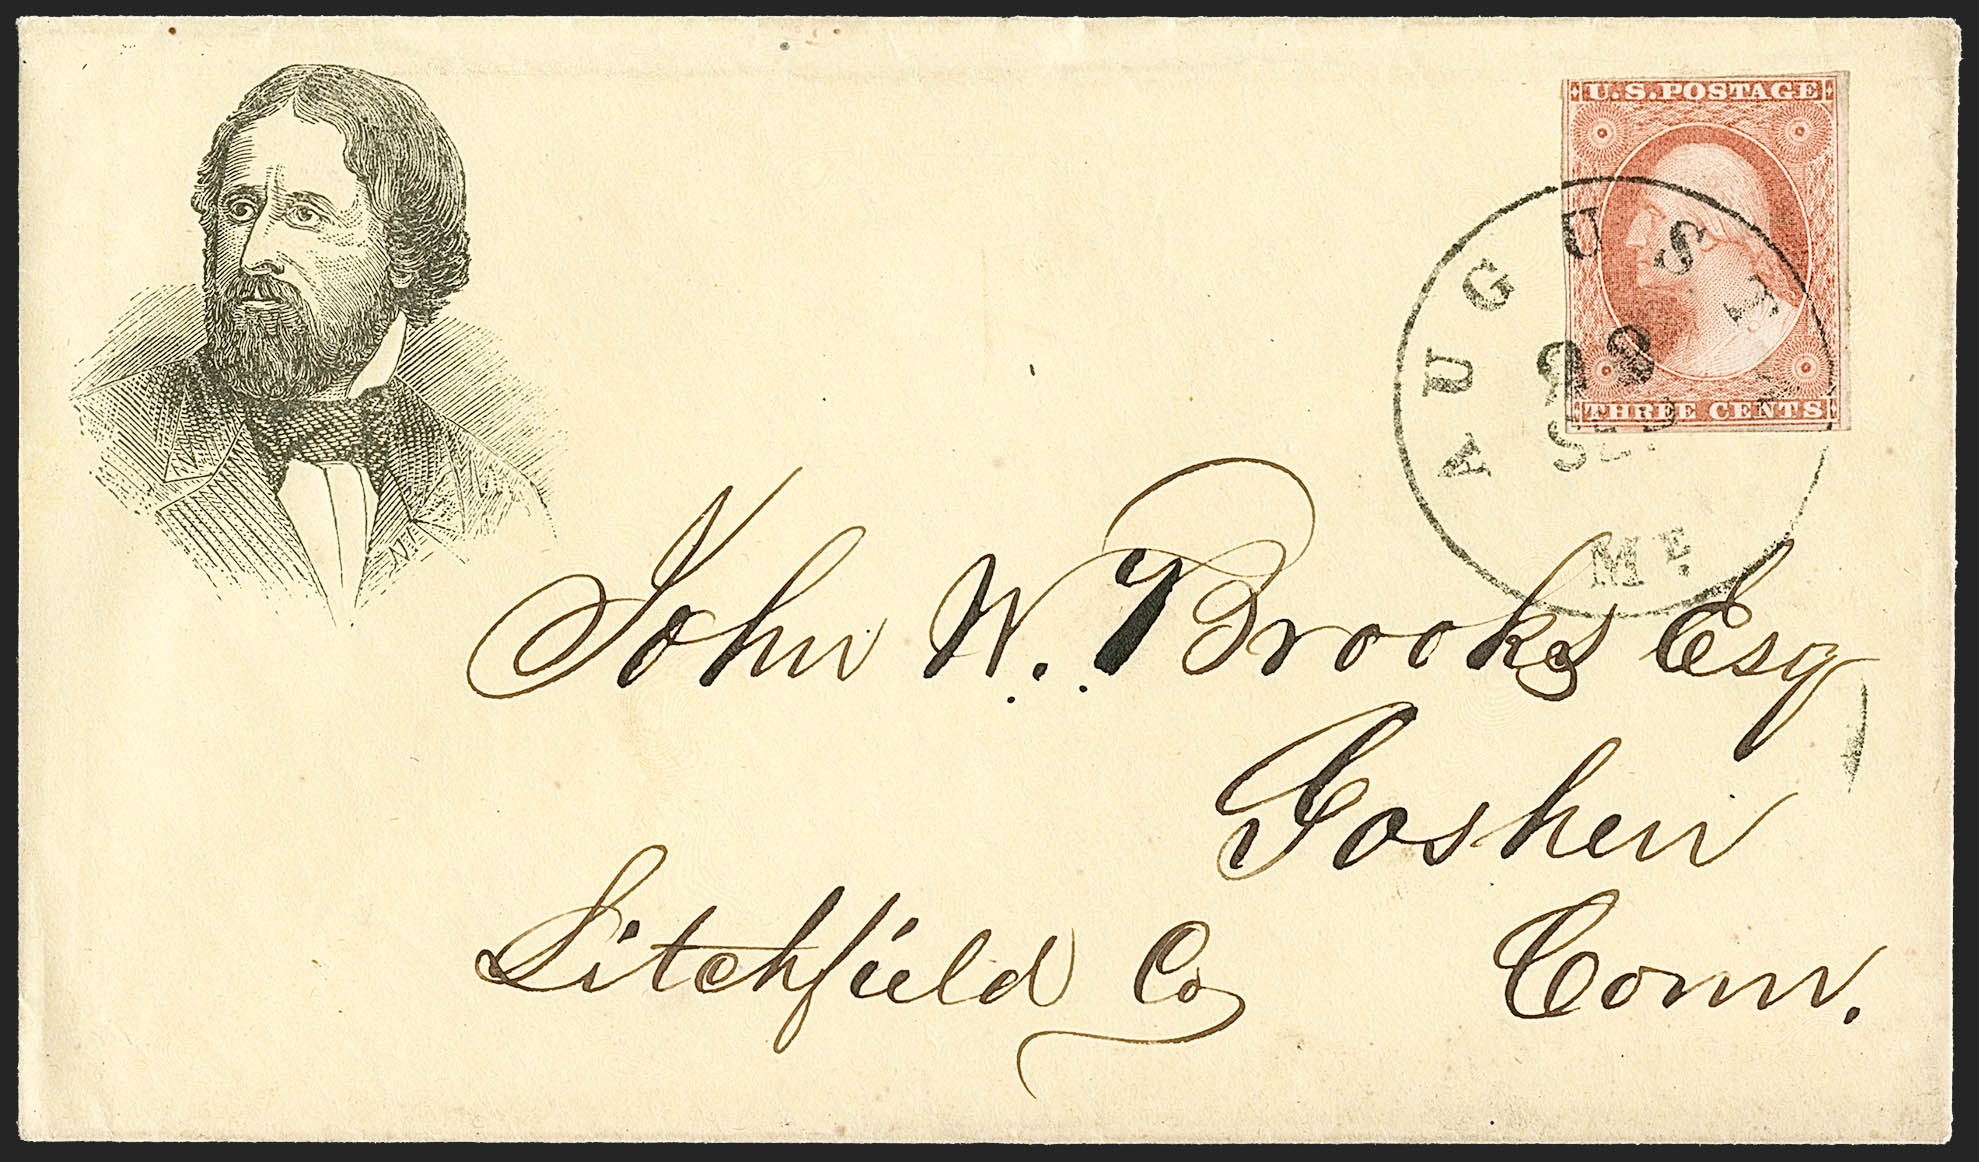 U.S. POSTAGE
THREE CENTS
AUGUSTA
SEP
ME
John W. Brooks Esq
Goshen
Litchfield Co Conn.